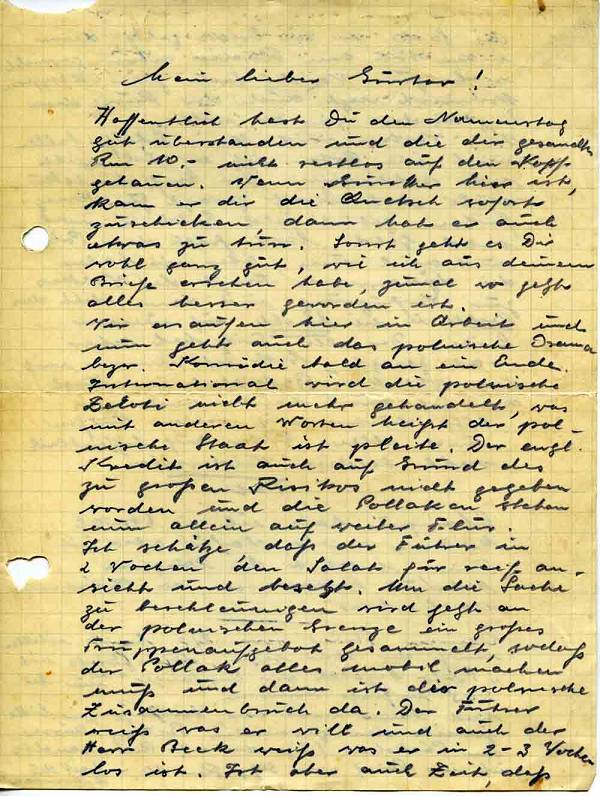 Mein lieber Gustav!
Hoffentlich hast Du den Namenstag
gut überstanden und die dir gesandten
Rm 10.- nicht restlos auf den Kopf
gehauen. Wenn Günther hier ist,
kann er dir die sofort
zuschicken, dann hat er auch
etwas zu tun. Sonst geht es Dir
wohl ganz gut, wie ich aus deinem
Briefe ersehen habe, zumal wo jetzt
alles besser geworden ist.
Wir ersaufen hier in Arbeit und
nun geht auch das polnische Drama
bezw. Komödie bald an ein Ende.
International wird die polnische
Zeloti nicht mehr gehandelt, was
mit anderen Worten heißt der pol-
nische Staat ist pleite. Der engl.
Kredit ist auch auf Grund des
zu großen Risikos nicht gegeben
worden und die Pollaken stehen
nun allein auf weiter Flur.
Ich schätze, daß der Führer in
2 Wochen den Salat für reif an-
sieht und besetzt. Um die Sache
zu beschleunigen wird jetzt an
der polnischen Grenze ein großes
Truppenaufgebot gesammelt, sodaß
der Pollak alles mobil machen
muß und dann ist der polnische
Zusammenbruch da. Der Führer
weiß was er will und auch der
Herr Beck weiß was er in 2-3 Wochen
los ist. Ist aber auch Zeit, daß